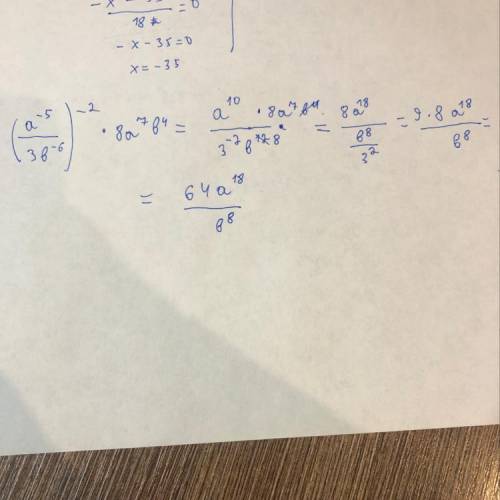 -x-35/18x = 0
-x-35=0
x=-35
(a^-5/3b^-6)^-2 · 8a^7b^4 = a^10 · 8a^7/3^-2 b^8 = 8a^18/(b^8/3^2) = 9·8a^18/b^8 =
= 64a^18/b^8